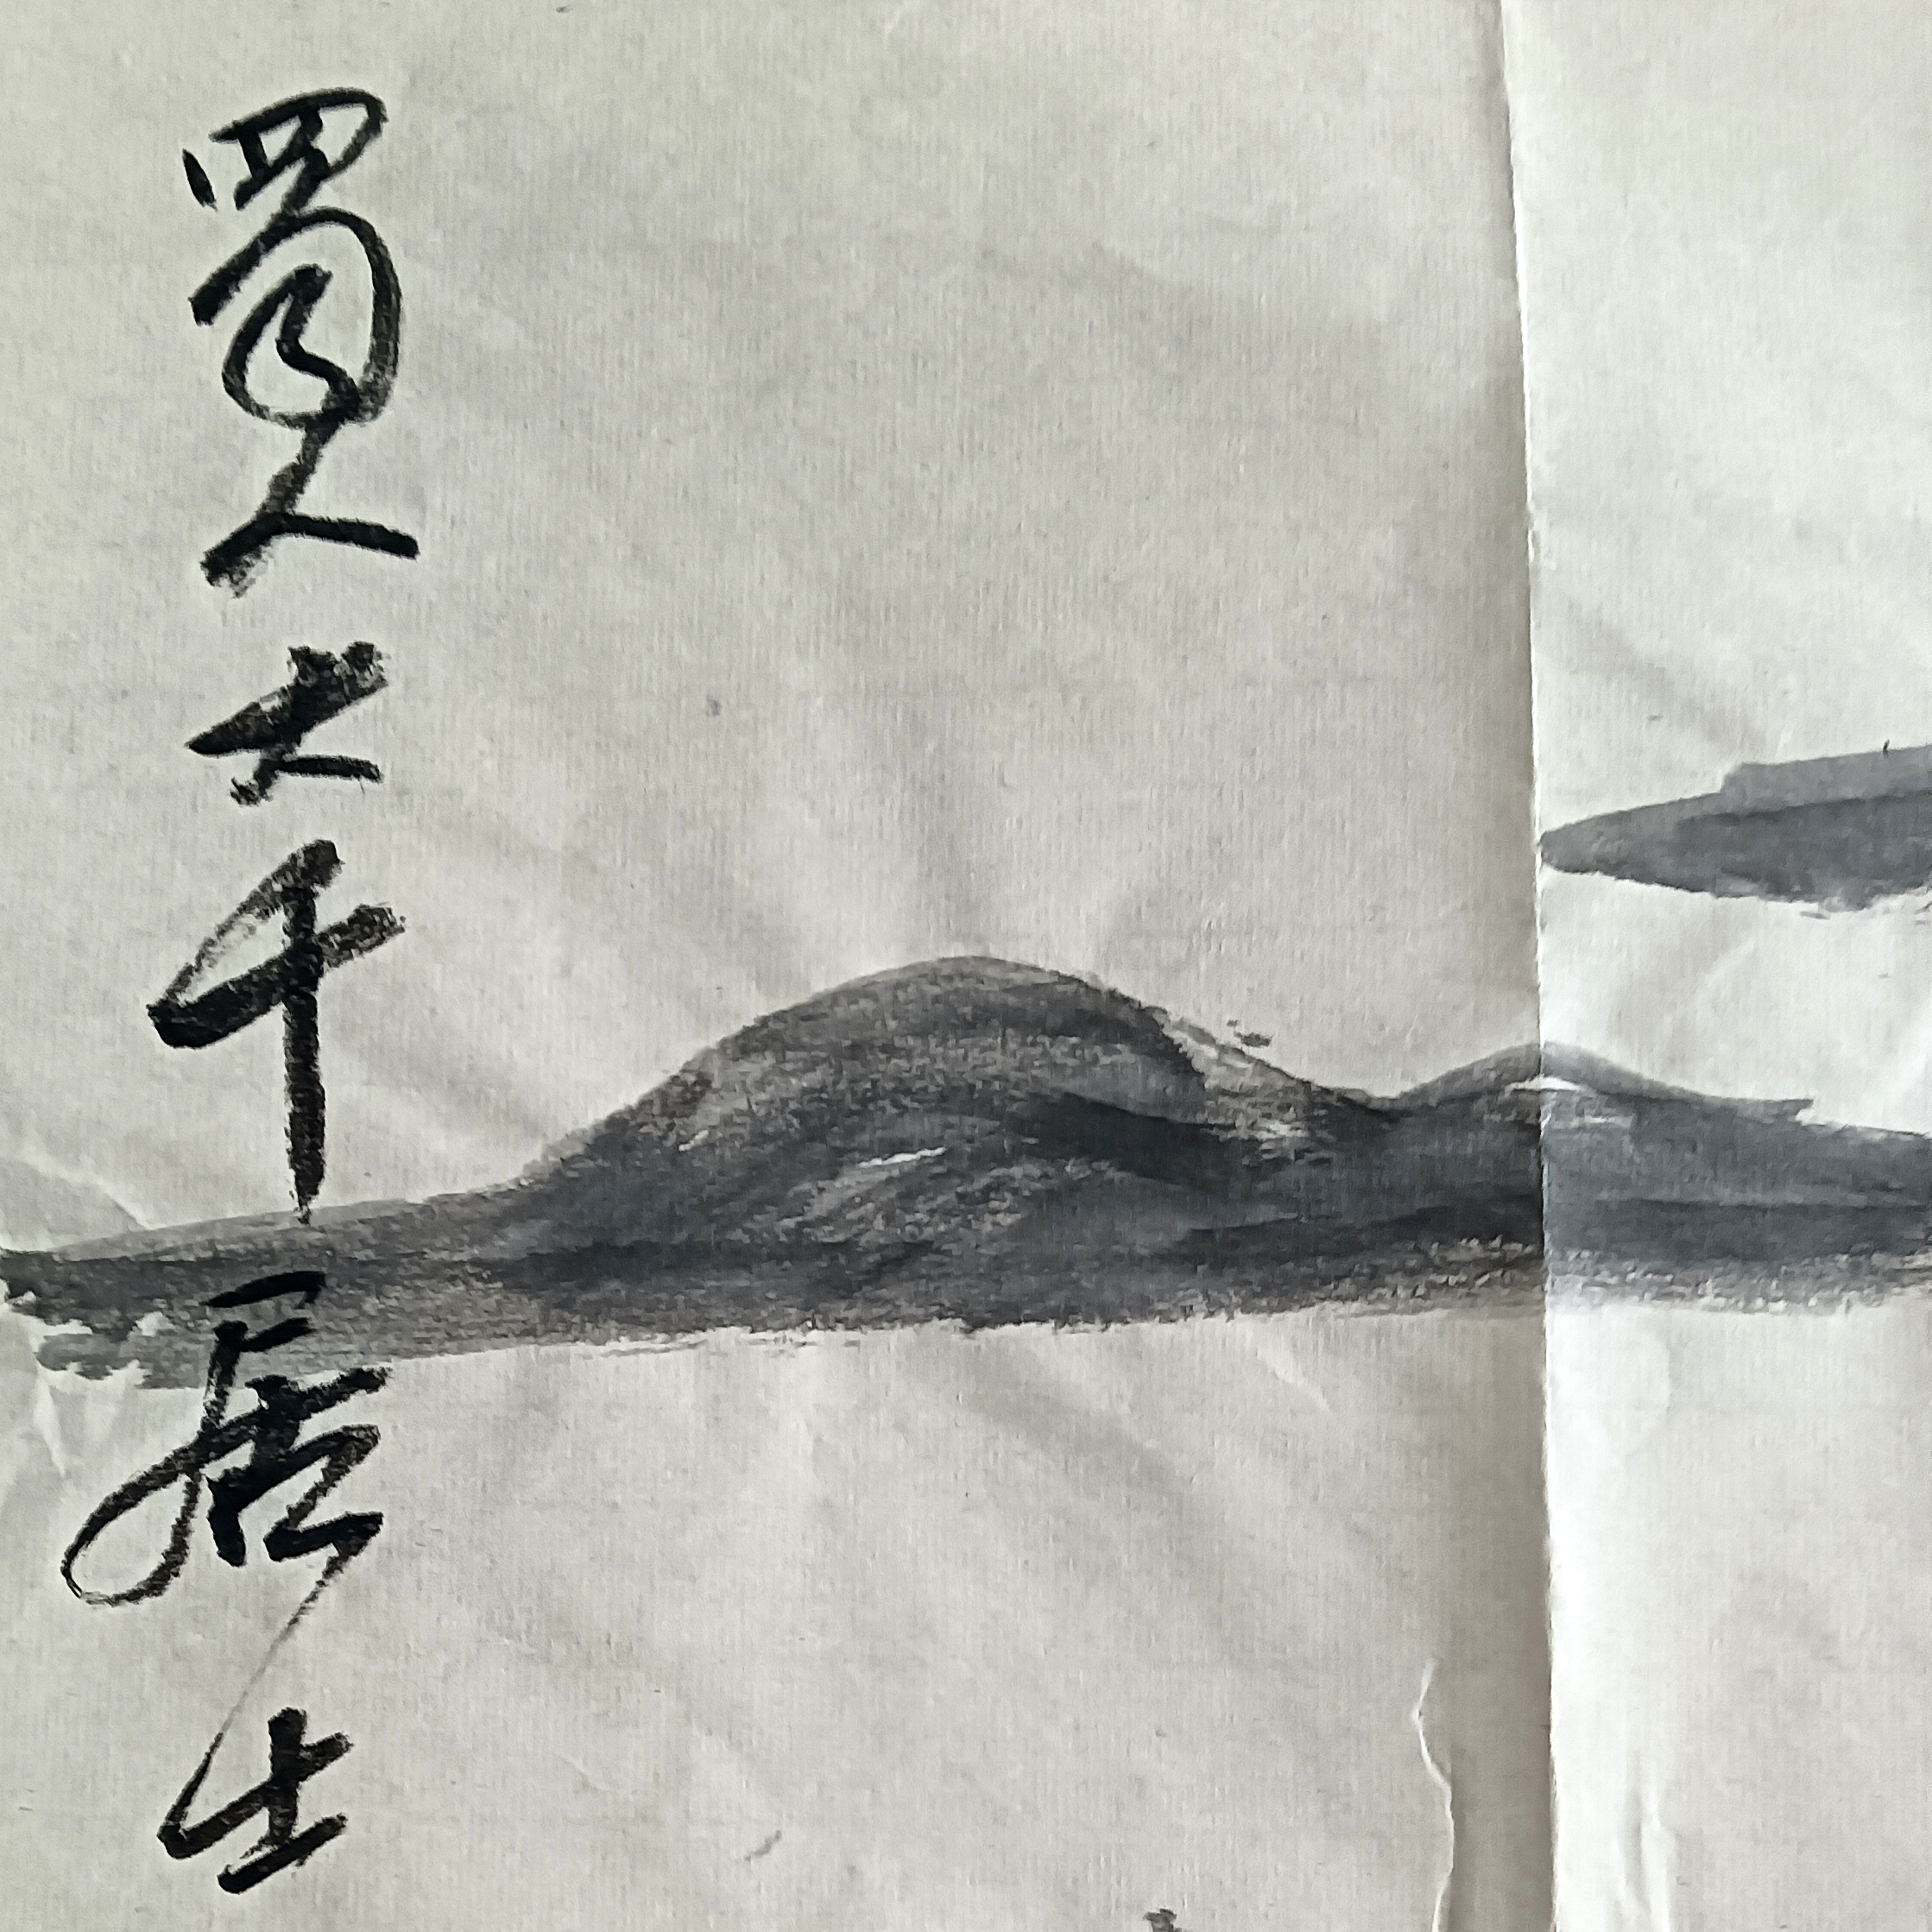 蜀人大千居士